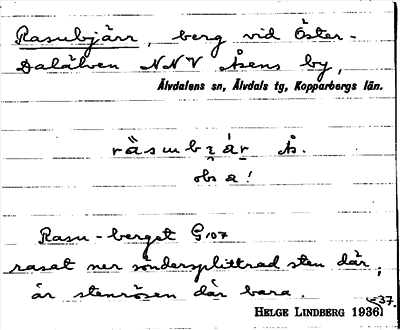 Rasubjärr, berg vid Öster-
Dalälven NNV Åsens by,
Älvdalens sn, Älvdals tg, Kopparbergs län.
Ås.
obs a!
Rasu-berget G107
rasat ner söndersplittrad sten där,
är stenrösen där bara.
-37.
HELGE LINDBERG 1936